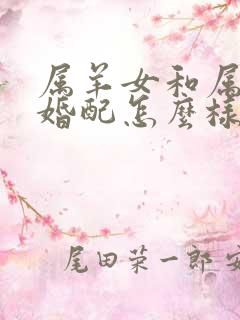 属羊女和属
婚配怎麼様
尾田荣一郎 安